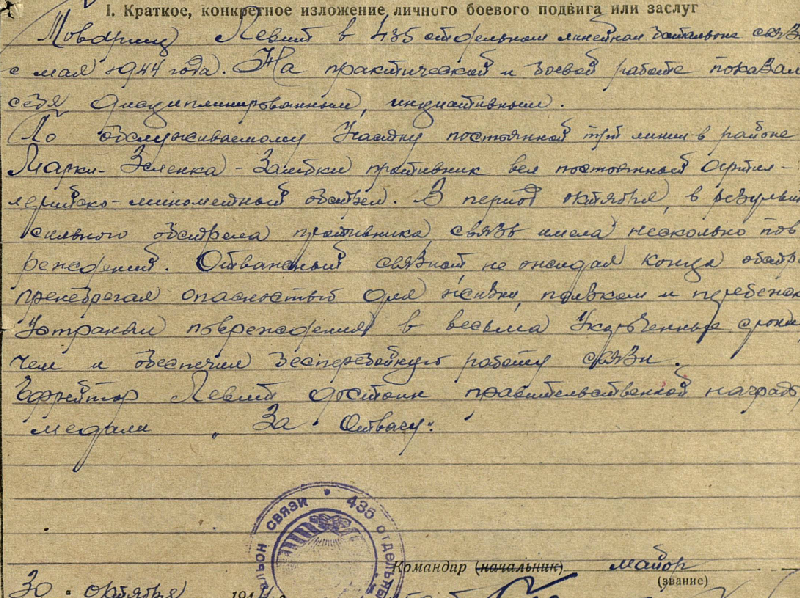 I. Краткое, конкретное изложение личного боевого подвига или заслуг
Товарищ Левит в 435 отдельном линейном батальоне связи
с мая 1944 года. На практической и боевой работе показал
себя дисциплинированным, инициативным.
По обслуживаемому участку постоянной тлг линии в районе
Марки - Зеленка - Замбки противник вел постоянный артил-
лерийско-минометный обстрел. В период октября, в результ
сильного обстрела противника связь имела несколько пов
реждений. Отважный связист, не ожидая конца обстр
пренебрегая опасностью для жизни, ползком и перебежк
устранял повреждения в весьма укороченные сроки,
чем и обеспечил бесперебойную работу связи.
Ефрейтор Левит достоин правительственной награды
медали "За Отвагу".
СВЯЗИ • 435 ОТДЕЛЬН
Командир (начальник) майор
(звание)
30 октября 194